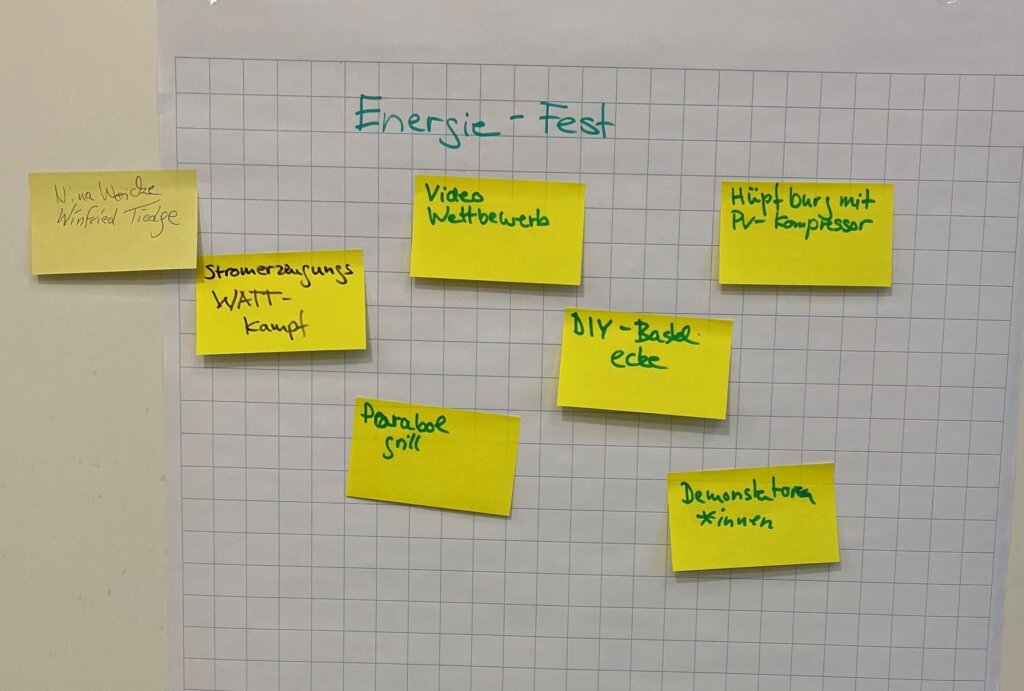 Energie - Fest
Nina
Winfried Tiedge
Video
Wettbewerb
Hüpfburg mit
PV-Kompressor
Stromerzeugungs
WATT-
kampf
DIY-Bastel
ecke
Parabol
grill
Demonstratoren
*innen